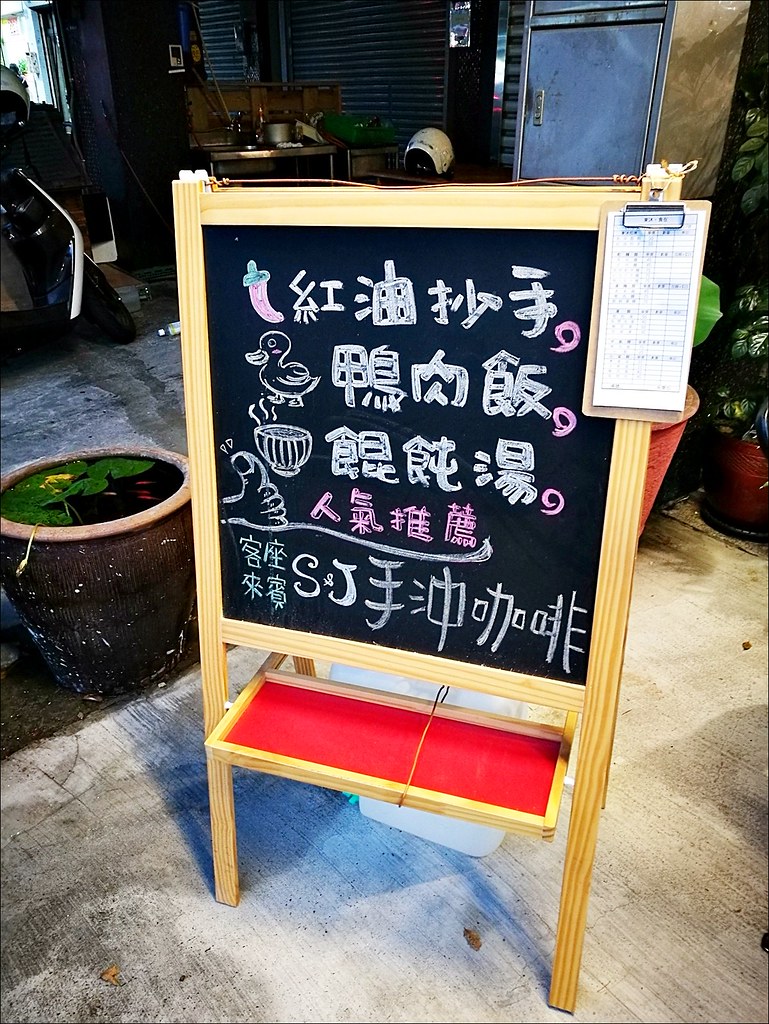 紅油抄手,
鴨肉飯,
餛飩湯,
人氣推薦
客座
來賓
S&J手沖咖啡